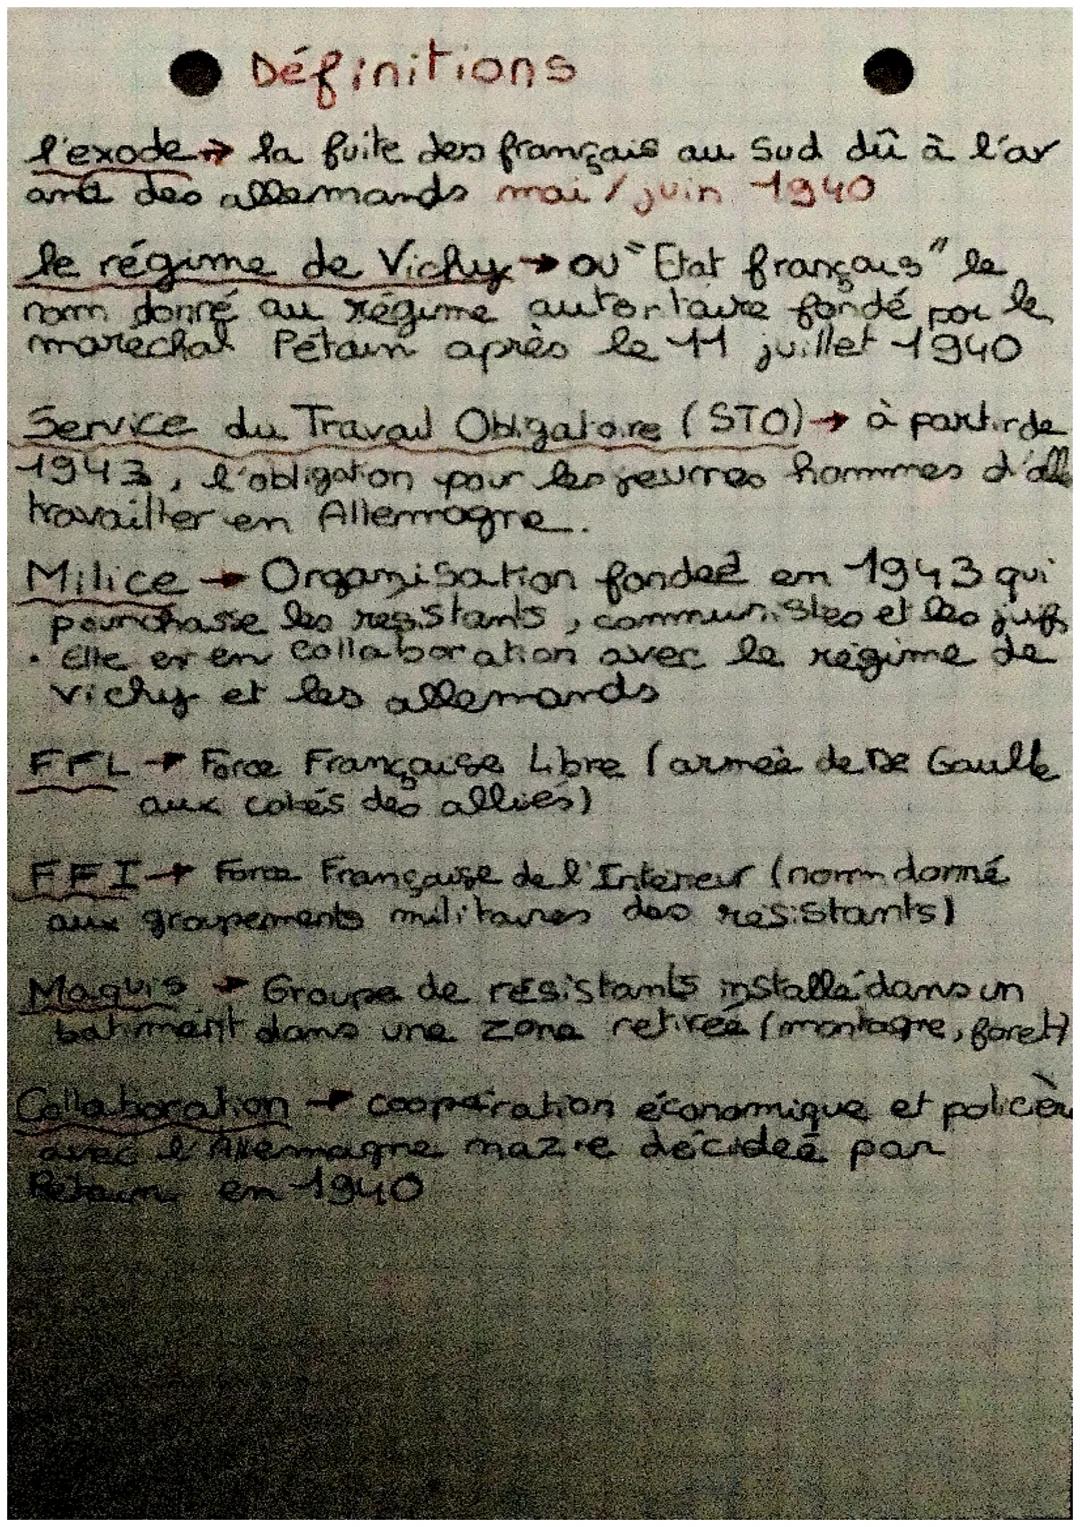 Définitions
l'exode → la fuite des français au Sud dû à l'ar
des allemands mai/juin 1940
le régime de Vichy → ou "Etat français" le
nom donné au régime autoritaire fondé par le
maréchal Pétain après le 11 juillet 1940
Service du Travail Obligatoire (STO) → à partir de
1943, l'obligation pour les jeunes hommes d'alle
travailler en Allemagne.
Milice → Organisation fondée en 1943 qui
pourchasse les resistants, communistes et les juifs
. Elle er en collaboration avec le régime de
Vichy et les allemands
FFL → Force Française Libre (armée de De Gaulle
aux cotés des alliés)
FFI → Force Française de l'Interieur (nom donné
aux groupements militaires des résistants)
Maquis → Groupe de résistants installé dans un
batiment dans une zone retirée (montagne, foret)
Collaboration → coopération économique et policièr
avec l'Allemagne nazie décideé par
Pétain en 1940